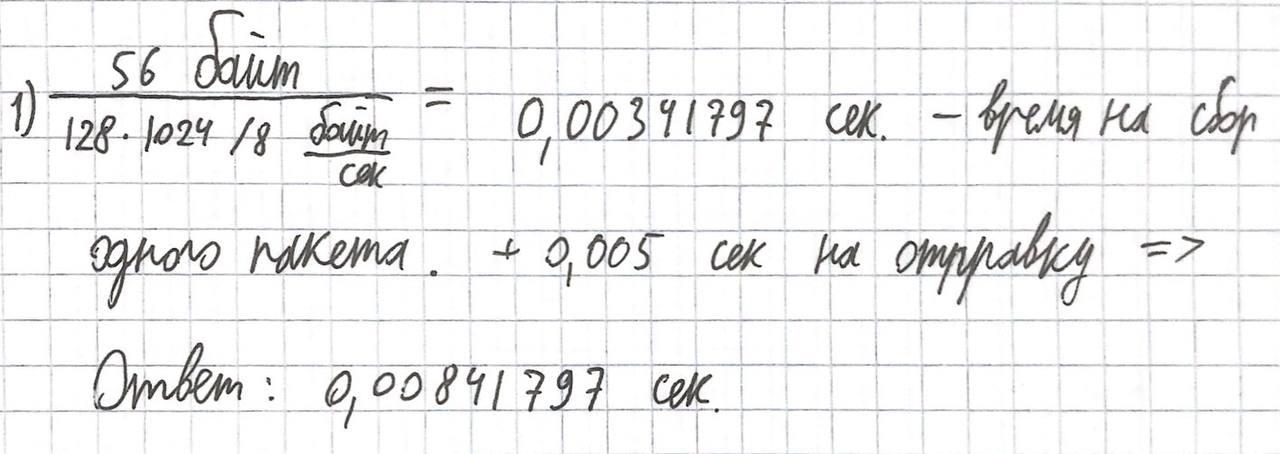 1) 56 байт / 128 · 1024 / 8 байт/сек = 0,00341797 сек. – время на сбор
одного пакета. + 0,005 сек на отправку =>
Ответ: 0,00841797 сек.